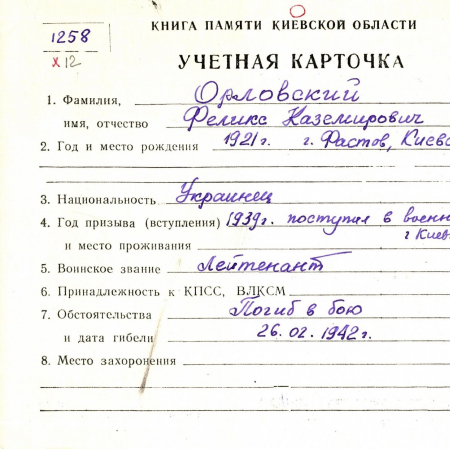 КНИГА ПАМЯТИ КИЕВСКОЙ ОБЛАСТИ
1258
х 12
УЧЕТНАЯ КАРТОЧКА
1. Фамилия, Орловский
имя, отчество Феликс Каземирович
2. Год и место рождения 1921г. г. Фастов, Киевс
3. Национальность Украинец
4. Год призыва (вступления) 1939г. поступил в военн
и место проживания г Киев
5. Воинское звание Лейтенант
6. Принадлежность к КПСС, ВЛКСМ
7. Обстоятельства Погиб в бою
и дата гибели 26.02.1942г.
8. Место захоронения